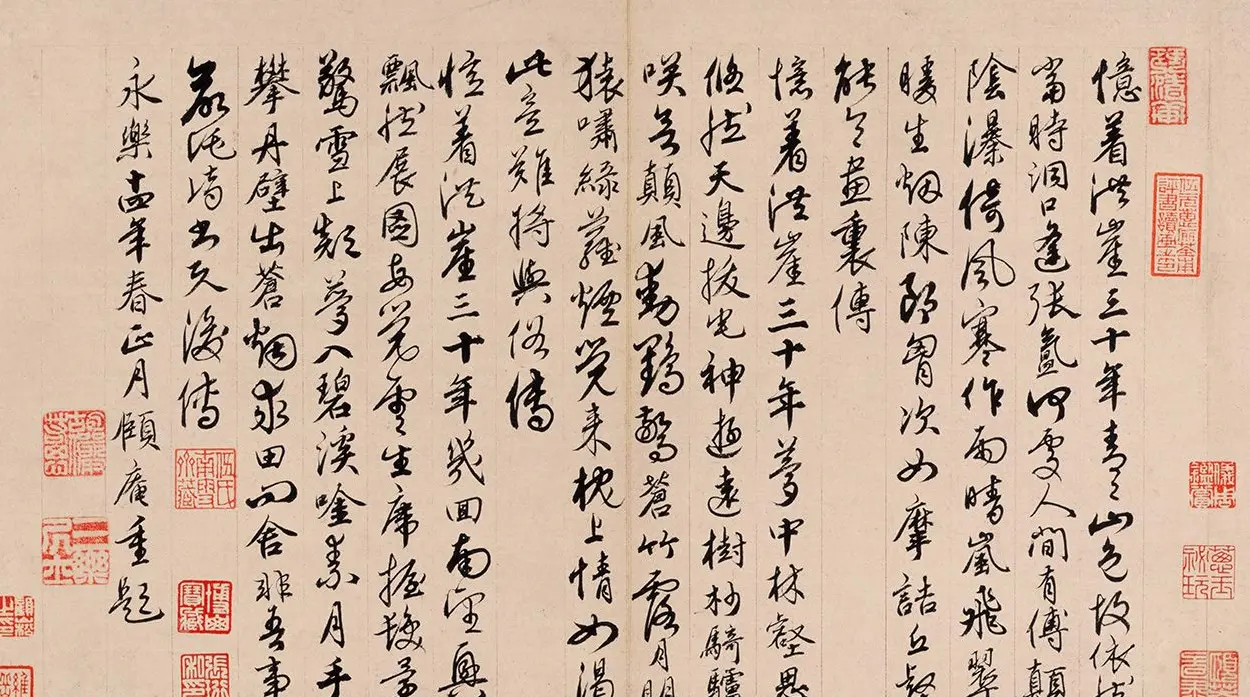 憶着洪崖三十年青〻山色故依然
當時洞口逢張氳何處人間有傅顛
陰瀑倚風寒作雨晴嵐飛翠
暖生烟陳郎胷次如摩詰丘壑
能令畫裏傳
憶着洪崖三十年夢中林壑思
翛然天邊拔宅神遊遠樹杪騎驢
咲無顛風動鶴驚蒼竹露月明
猿嘯綠蘿煙覺來枕上情如渴
此意難將與俗傳
憶着洪崖三十年幾回南望興
飄然展圖每覺雲生席握髮
驚雪上顛夢入碧溪唫素月手
攀丹壁出蒼烟求田問舍非吾事
久後傳
永樂十四年春正月頤庵重題